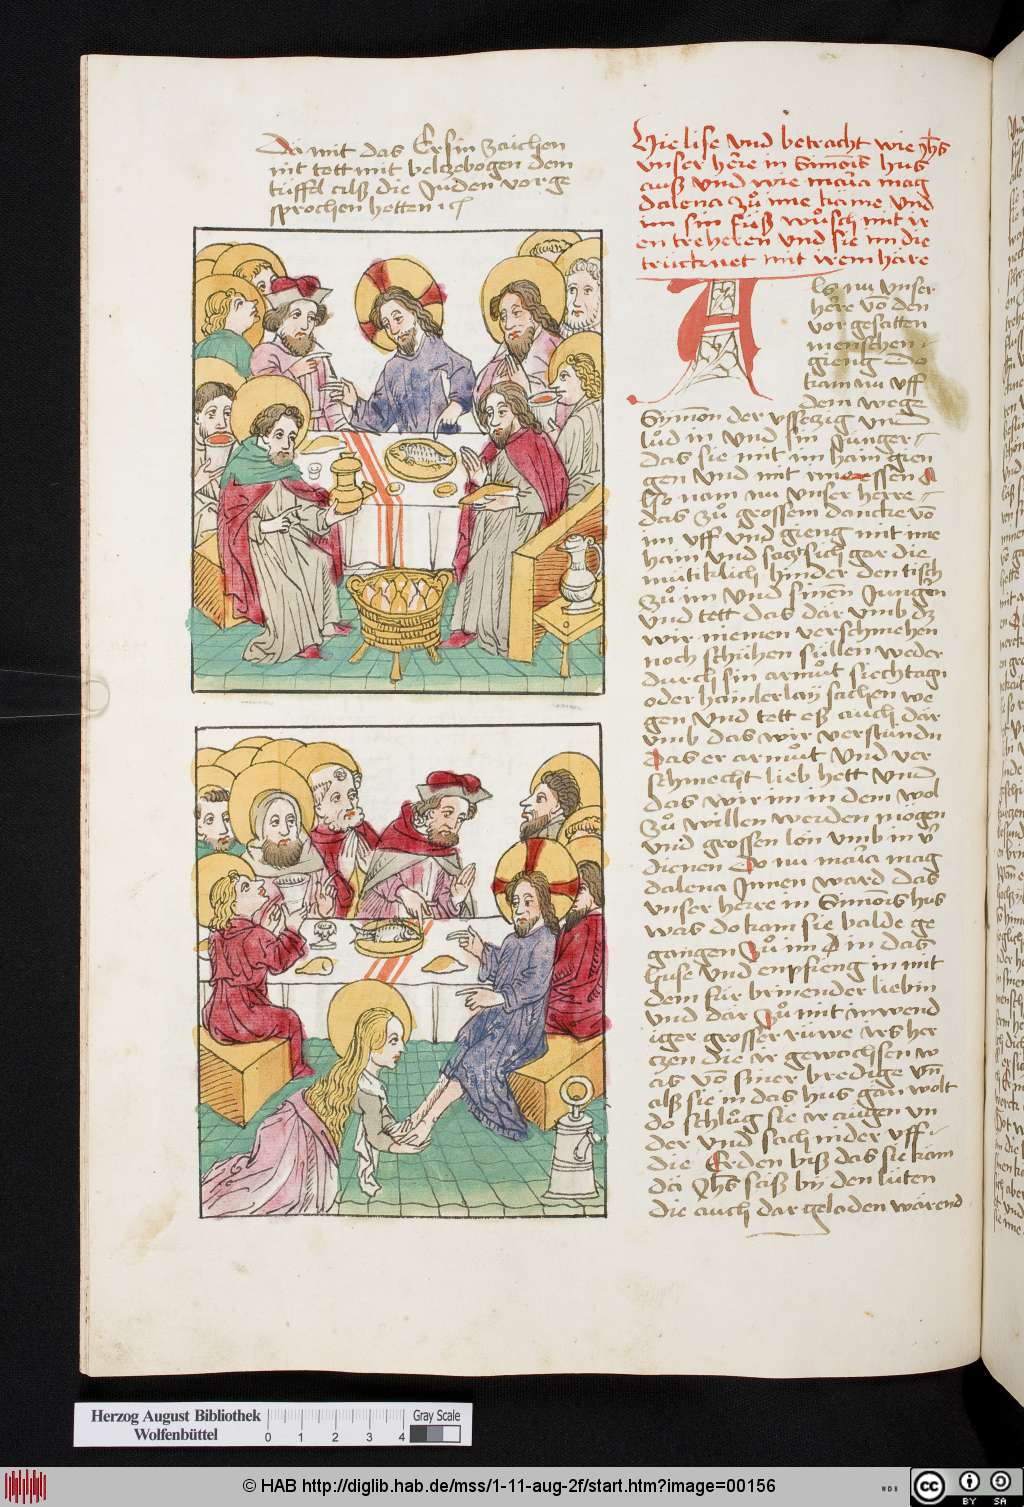 Da mit das Er sin zaichen
nit tett mit beltzebogen dem
tüffel alß die Juden vor ge
sprochen hetten
Hie lise vnd betracht wie jhs
vnser here in Simōnis hus
auß vnd wie maria mag
dalena zů ime käme vnd
im sin füß wůsch mit ir
en treheren vnd sie im die
trücknet mit irem häre
Als nu vnser
herr võ den
vor gesatten
menschen
gieng Do
kam nu vff
dem wege
Symon der vssetzig vnd
lůd in vnd sin Junger
das sie mit im haim gien
gen vnd mit im essen A
lso nam nu vnser herre
das zů grossem dancke võ
im vff vnd gieng mit ime
haim vnd satzt sich gar die
mütiklich hinder den tisch
zů im vnd sinen Jungern
vnd tett das dar vmb dz
wir niemen verschmehen
noch schühen süllen weder
durch sin armůt siechtagn
oder hainlerlay sachen we
gen vnd tett eß auch dar
vmb das wir verstündn
Das er armůt vnd ver
schmecht lieb hett vnd
das wir im in dem wol
zů willen werden mögen
vnd grossen lon vmb in v̄
dienen Do nu maria mag
dalena Jnnen ward das
vnser herre in Simōnis hus
was do kam sie balde ge
gangen zů im in das
huse vnd enpfieng in mit
dem für brinender liebin
vnd dar zů mit inwend
iger grosser rüwe irs her
czen die ir gewachsen w
as võ siner bredige vn̄
alß sie in das hus gan wolt
do schlůg sie ir augen vn
der vnd sach nider vff
die Erden biß das sie kam
da Jhs saß bij den lüten
die auch dar geladen wärend
Herzog August Bibliothek
Wolfenbüttel
0 1 2 3 4
Gray Scale
© HAB http://diglib.hab.de/mss/1-11-aug-2f/start.htm?image=00156
WDB
cc BY SA